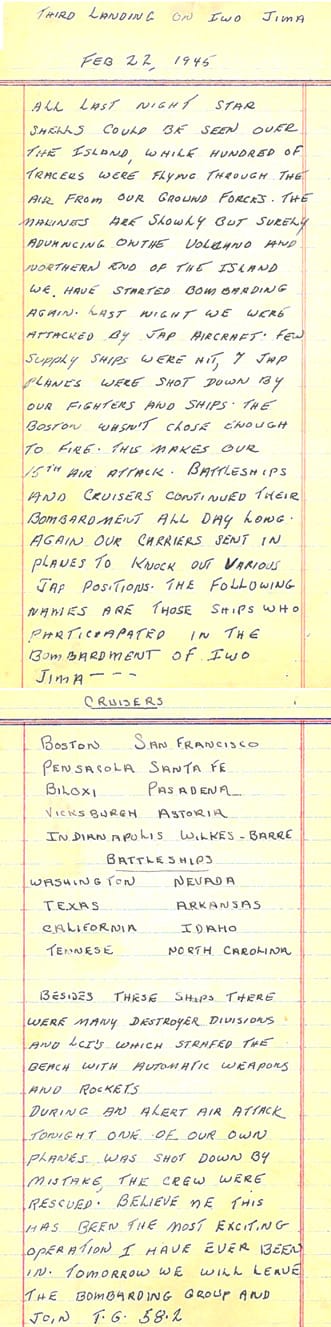 THIRD LANDING ON IWO JIMA
FEB 22, 1945
ALL LAST NIGHT STAR
SHELLS COULD BE SEEN OVER
THE ISLAND, WHILE HUNDRED OF
TRACERS WERE FLYING THROUGH THE
AIR FROM OUR GROUND FORCES. THE
MARINES ARE SLOWLY BUT SURELY
ADVANCING ON THE VOLCANO AND
NORTHERN END OF THE ISLAND
WE HAVE STARTED BOMBARDING
AGAIN. LAST NIGHT WE WERE
ATTACKED BY JAP AIRCRAFT. FEW
SUPPLY SHIPS WERE HIT, 7 JAP
PLANES WERE SHOT DOWN BY
OUR FIGHTERS AND SHIPS. THE
BOSTON WASN'T CLOSE ENOUGH
TO FIRE. THIS MAKES OUR
15TH AIR ATTACK. BATTLESHIPS
AND CRUISERS CONTINUED THEIR
BOMBARDMENT ALL DAY LONG.
AGAIN OUR CARRIERS SENT IN
PLANES TO KNOCK OUT VARIOUS
JAP POSITIONS. THE FOLLOWING
NAMES ARE THOSE SHIPS WHO
PARTICAPATED IN THE
BOMBARDMENT OF IWO
JIMA - - -
CRUISERS
BOSTON SAN FRANCISCO
PENSACOLA SANTA FE
BILOXI PASADENA
VICKSBURGH ASTORIA
INDIANAPULIS WILKES-BARRE
BATTLESHIPS
WASHINGTON NEVADA
TEXAS ARKANSAS
CALIFORNIA IDAHO
TENNESE NORTH CAROLINA
BESIDES THESE SHIPS THERE
WERE MANY DESTROYER DIVISIONS
AND LCI'S WHICH STRAFED THE
BEACH WITH AUTOMATIC WEAPONS
AND ROCKETS
DURING AN ALERT AIR ATTACK
TONIGHT ONE OF OUR OWN
PLANES WAS SHOT DOWN BY
MISTAKE, THE CREW WERE
RESCUED. BELIEVE ME THIS
HAS BEEN THE MOST EXCITING
OPERATION I HAVE EVER BEEN
IN. TOMORROW WE WILL LEAVE
THE BOMBARDING GROUP AND
JOIN T.G. 58.2